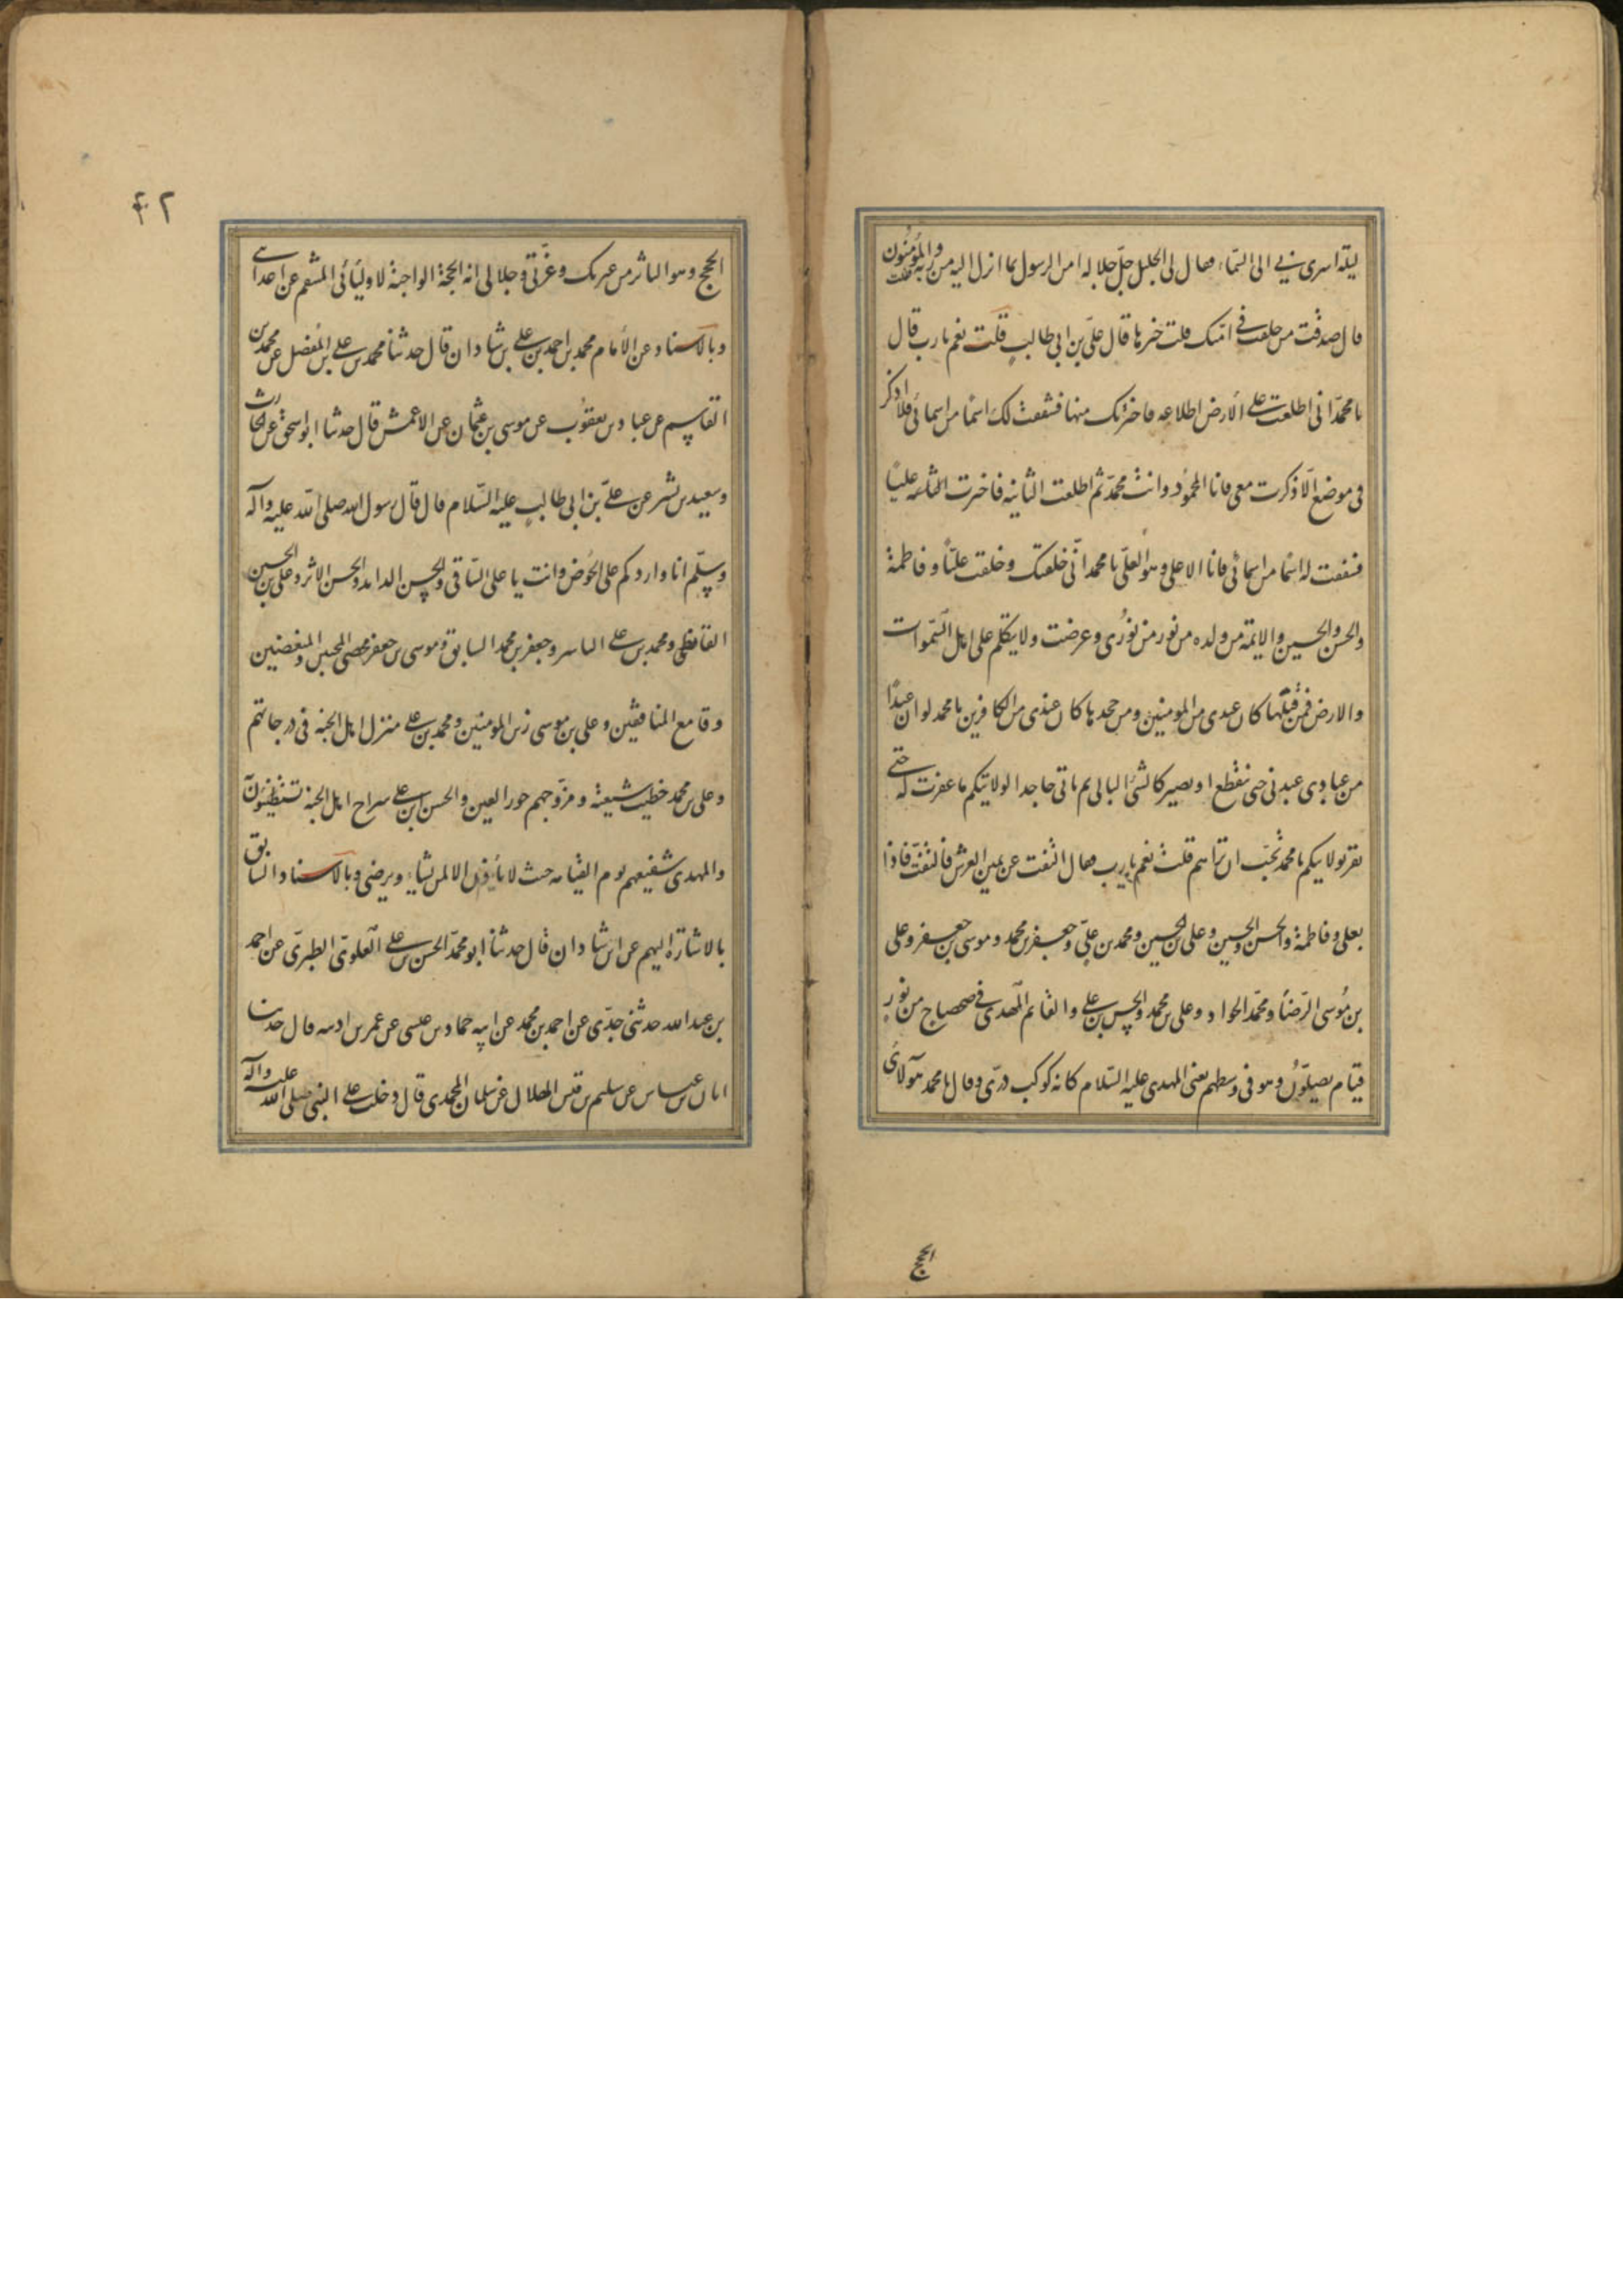 ليلة اسرى بي الى السّماء فقال لى الجليل جلّ جلاله امن الرسول بما انزل اليه من ربه والمؤمنون قلت
قال صدقت من خلفت في امتك قلت خيرها قال علّى بن ابى طالب قلت نعم يا رب قال
يا محمّد انى اطلعت على الأرض اطلاعه فاخترتك منها فشققت لك اسمًا من اسمائى فلا اذكر
فى موضع الّا ذكرت معى فانا المحمُود وانت محمّد ثم اطلعت الثانيه فاخترت عليًا
فشققت له اسمًا من اسمائى فانا الاعلى وهو العلّى يا محمد انّى خلقتك وخلقت عليًّا وفاطمة
والحسن والحسين والايمة من ولده من نور من نوُرى وعرضت ولايتكم على اهل السّموات
والارض فمن قبلها كان عندى من المومنين ومن جحدها كان عندى من الكافرين يا محمد لو ان عبدًا
من عبادى عبدنى حتى ينقطع او يصير كالشن البالى ثم ياتى جاحدا لولايتكم ما غفرت له حتى
يقر بولايتكم يا محمد تحبّ ان تراهم قلت نعم يا رب فقال التفت عن يمين العرش فالتفت فاذا
بعلى وفاطمة والحسن والحسين وعلى بن الحسين ومحمد بن علىّ وجعفر بن محمد وموسى بن جعفر وعلى
بن مُوسى الرّضا ومحمّد الجواد وعلى بن محمد والحسن بن على والقايم المهدى فى ضحضاح من نورٍ
قيام يصلّوُن وهو فى وسطهم يعنى المهدى عليه السّلام كانه كوكب درّى وقال يا محمد هولاى
الحجج
٤٢
الحجج وهو الثائر من عترتك وعزّتى وجلالى انه الحجة الواجبة لاوليائى المنتقم من اعدائى
وبالاسناد عن الأمام محمد بن احمد بن على بن شاذان قال حدثنا محمد بن على بن المفضل عن محمد بن
القاسم عن عباد بن يعقوب عن موسى بن عثمان عن الاعمش قال حدثنا ابو اسحق عن الحارث
وسعيد بن بشر عن علىّ بن ابى طالبٍ عليه السّلام قال قال رسول الله صلى الله عليه وآله
وسلّم انا واردكم على الحوض وانت يا على السّاقى والحسن الذايد والحسين الامر وعلى بن الحسين
الفارط ومحمد بن على الناشر وجعفر بن محمد السايق وموسى بن جعفر محصى المحبين والمبغضين
وقامع المنافقين وعلى بن موسى زين المومنين ومحمد بن على منزل اهل الجنه فى درجاتهم
وعلى بن محمد خطيب شيعته ومزوجهم حور العين والحسن بن على سراج اهل الجنة يستضيئون
والمهدى شفيعهم يوم القيامه حيث لا يأذن الا لمن يشاء ويرضى وبالاسناد السابق
بالاشارة اليهم عن ابن شاذان قال حدثنا ابو محمّد الحسن بن على العلوىّ الطبرىّ عن احمد
بن عبد الله حدثنى جدّى عن احمد بن محمد عن ابيه حماد بن عيسى عن عمر بن اذينه قال حدثنا
ابان بن عياش عن سليم بن قيس الهلالى عن سلمان المحمدى قال دخلت على النبى صلى الله عليه وآله